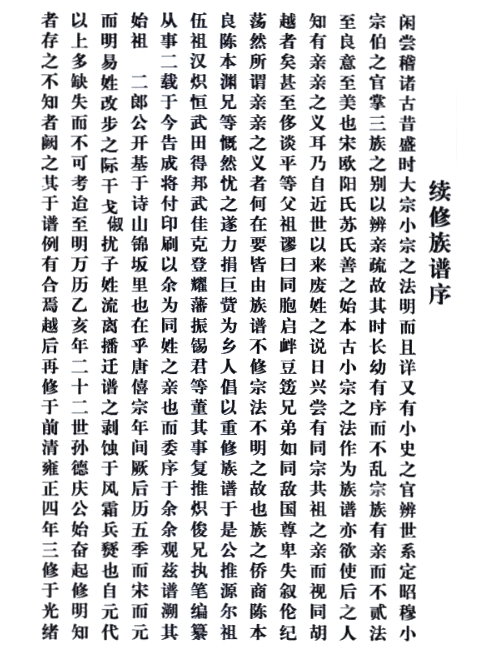 续修族谱序
闲尝稽诸古昔盛时大宗小宗之法明而且详又有小史之官辨世系定昭穆小
宗伯之官掌三族之别以辨亲疏故其时长幼有序而不乱宗族有亲而不贰法
至良意至美也宋欧阳氏苏氏善之始本古小宗之法作为族谱亦欲使后之人
知有亲亲之义耳乃自近世以来废姓之说日兴尝有同宗共祖之亲而视同胡
越者矣甚至侈谈平等父祖谬曰同胞启衅豆笾兄弟如同敌国尊卑失叙伦纪
荡然所谓亲亲之义者何在要皆由族谱不修宗法不明之故也族之侨商陈本
良陈本渊兄等慨然忧之遂力捐巨赀为乡人倡以重修族谱于是公推源尔祖
伍祖汉炽恒武田得邦武佳克登耀藩振锡君等董其事复推炽俊兄执笔编纂
从事二载于今告成将付印刷以余为同姓之亲也而委序于余余观兹谱溯其
始祖 二郎公开基于诗山锦坂里也在乎唐僖宗年间厥后历五季而宋而元
而明易姓改步之际干戈俶扰子姓流离播迁谱之剥蚀于风霜兵燹也自元代
以上多缺失而不可考迨至明万历乙亥年二十二世孙德庆公始奋起修明知
者存之不知者阙之其于谱例有合焉越后再修于前清雍正四年三修于光绪